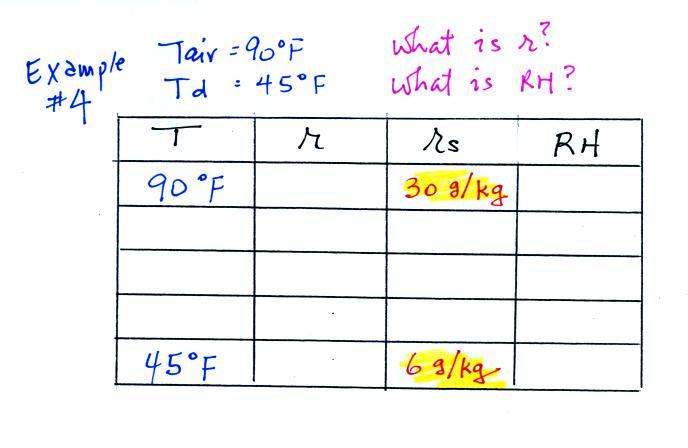 Example #4
Tair = 90°F
Td = 45°F
What is r?
What is RH?
T r rs RH
90°F 30 g/kg
45°F 6 g/kg